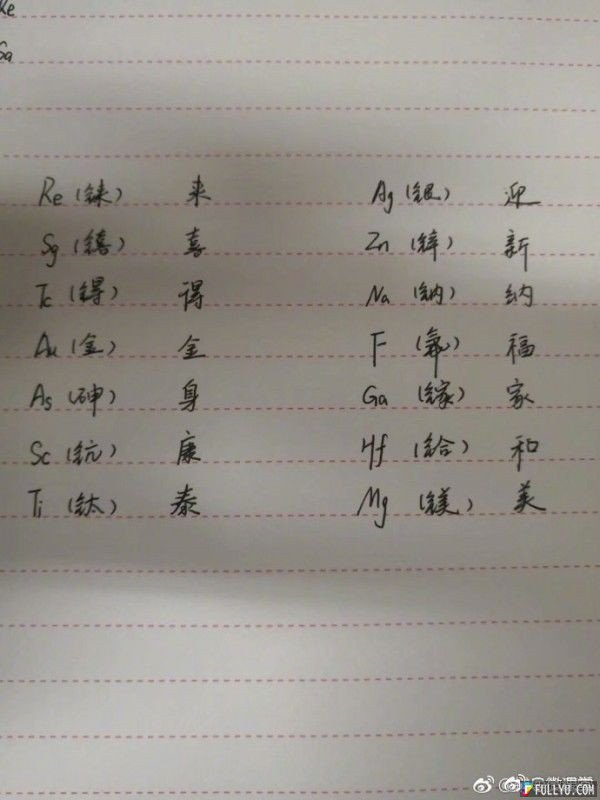 Re
Ga
Re (铼) 来 Ag (银) 迎
Sg (𨭎) 喜 Zn (锌) 新
Tc (锝) 得 Na (钠) 纳
Au (金) 金 F (氟) 福
As (砷) 身 Ga (镓) 家
Sc (钪) 康 Hf (铪) 和
Ti (钛) 泰 Mg (镁) 美
FULLYU.COM